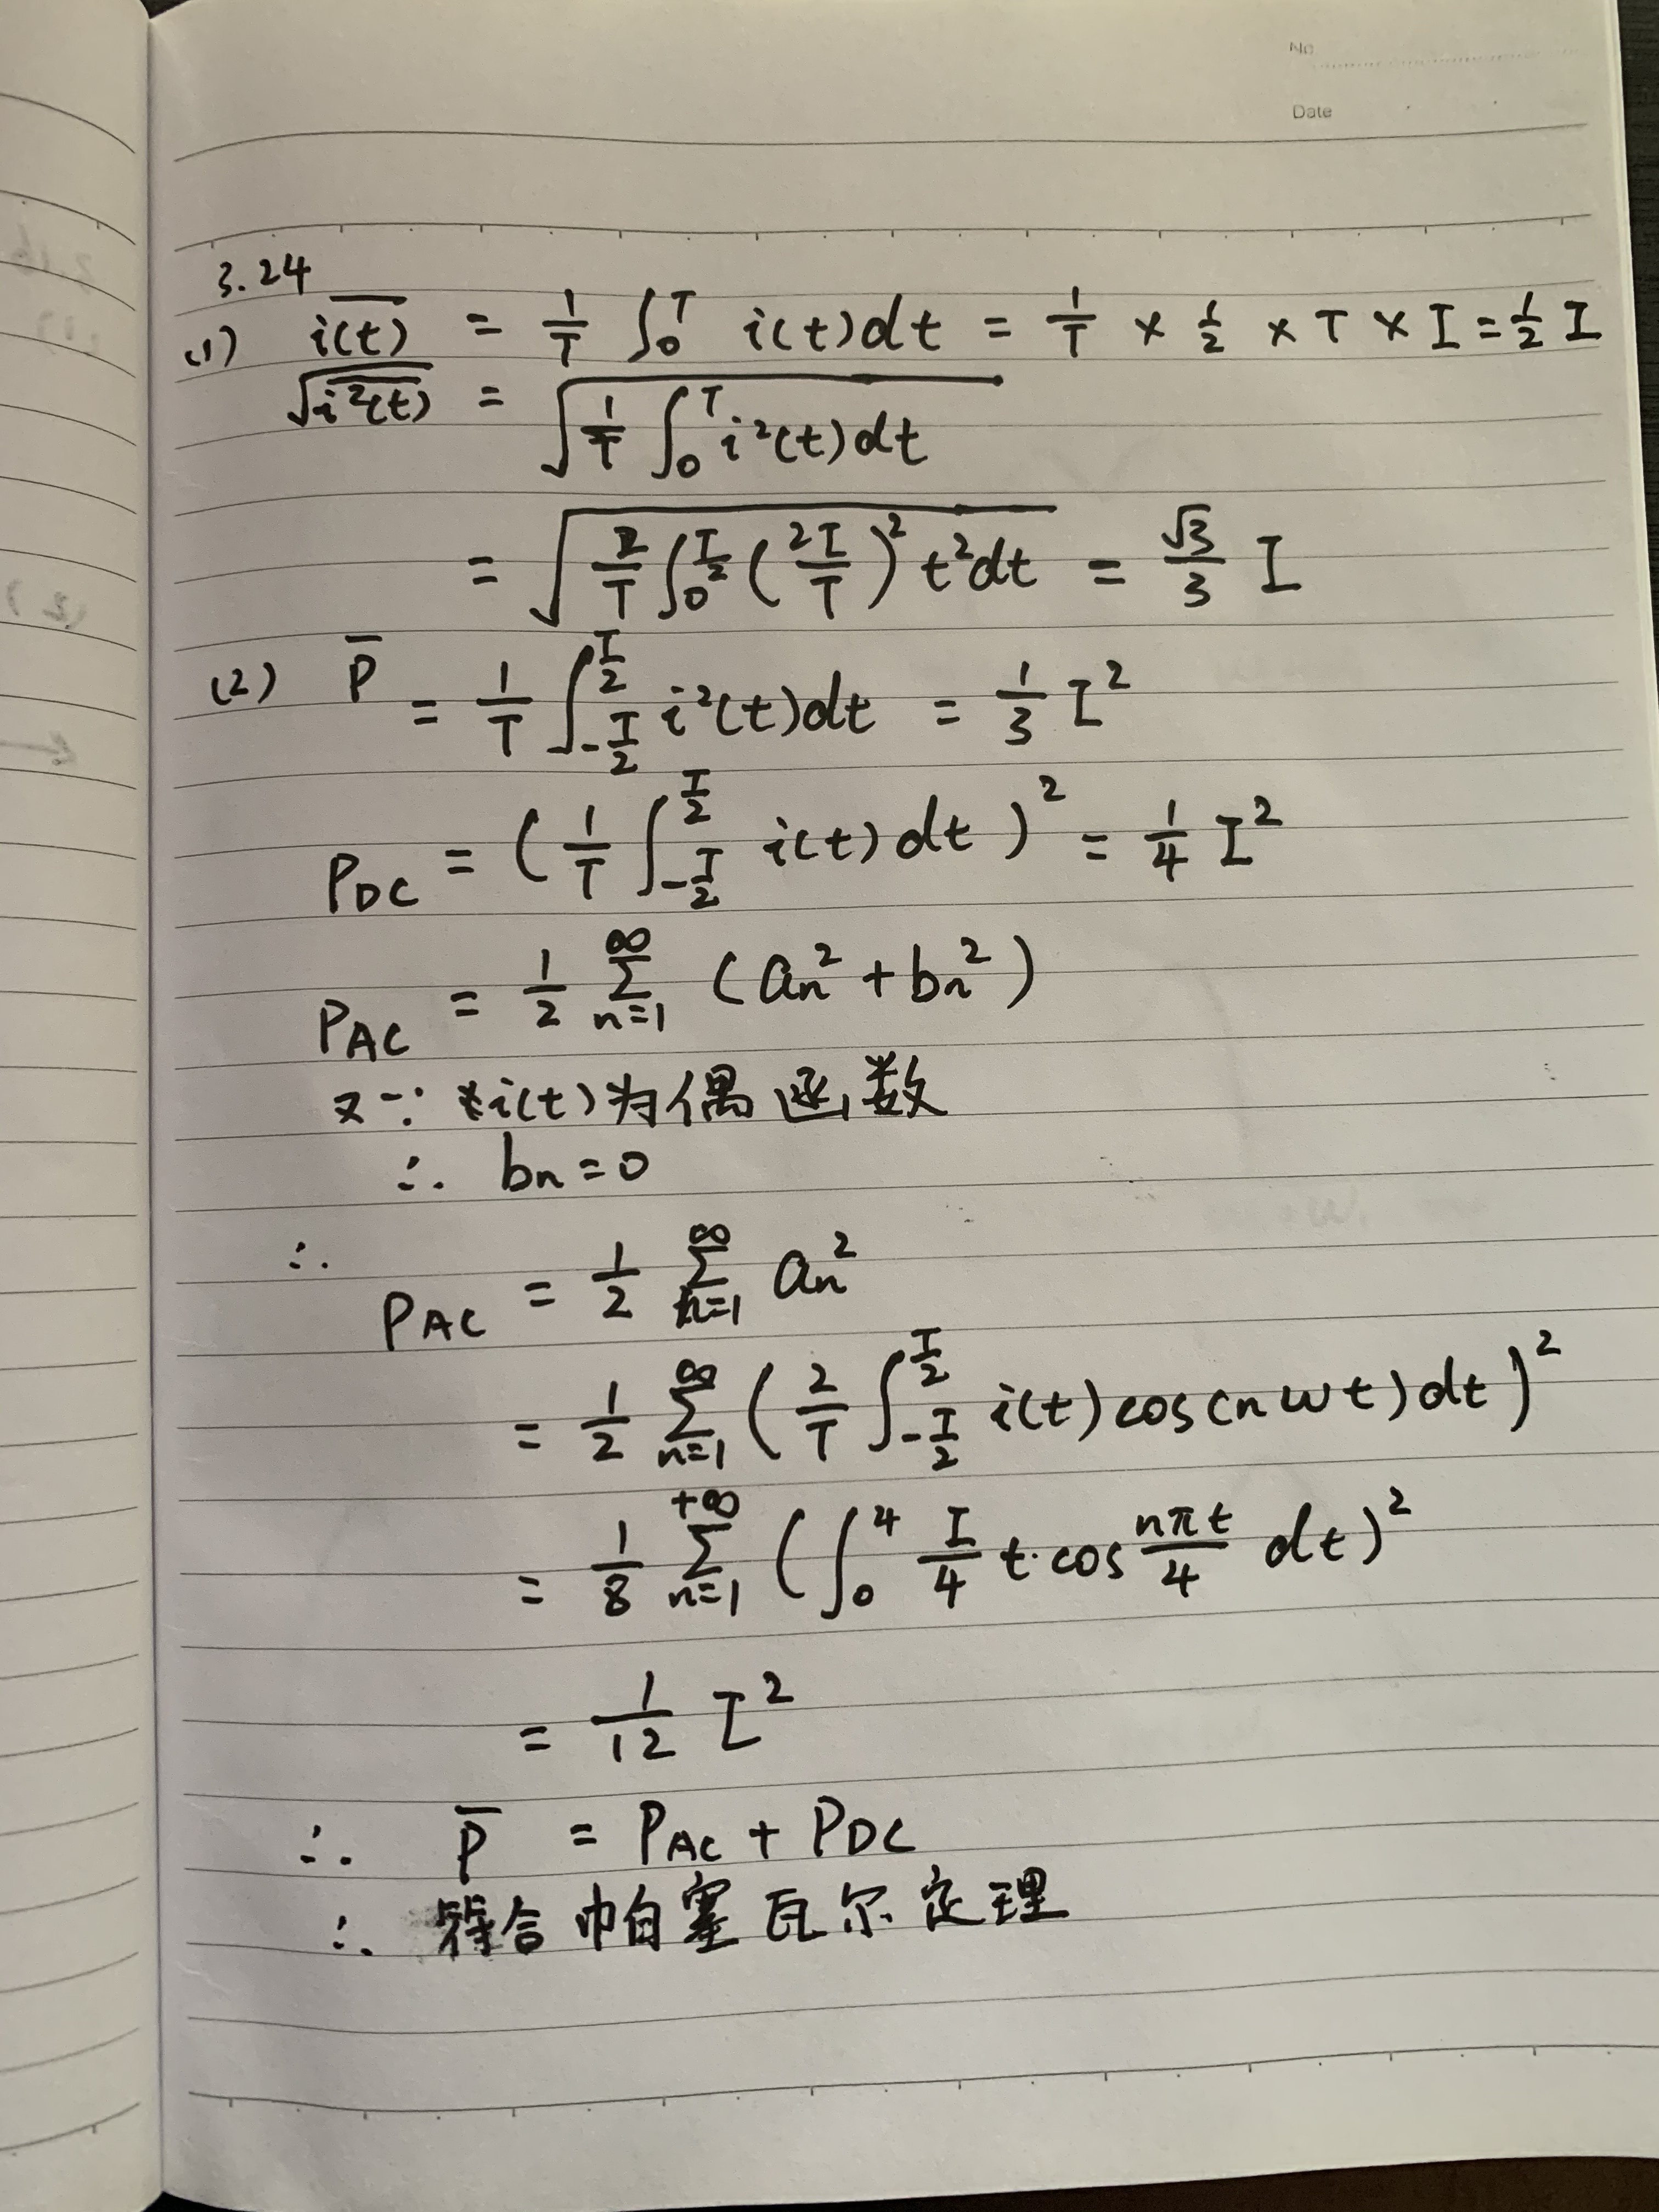 No
Date
3.24
(1) \overline{i(t)} = \frac{1}{T} \int_0^T i(t)dt = \frac{1}{T} × \frac{1}{2} × T × I = \frac{1}{2} I
\sqrt{\overline{i^2(t)}} = \sqrt{\frac{1}{T} \int_0^T i^2(t)dt}
= \sqrt{\frac{2}{T} \int_0^{\frac{T}{2}} (\frac{2I}{T})^2 t^2dt} = \frac{\sqrt{3}}{3} I
(2) \overline{P} = \frac{1}{T} \int_{-\frac{T}{2}}^{\frac{T}{2}} i^2(t)dt = \frac{1}{3} I^2
P_{DC} = (\frac{1}{T} \int_{-\frac{T}{2}}^{\frac{T}{2}} i(t)dt)^2 = \frac{1}{4} I^2
P_{AC} = \frac{1}{2} \sum_{n=1}^{∞} (a_n^2 + b_n^2)
又∵ i(t)为偶函数
∴ b_n = 0
∴ P_{AC} = \frac{1}{2} \sum_{n=1}^{∞} a_n^2
= \frac{1}{2} \sum_{n=1}^{∞} (\frac{2}{T} \int_{-\frac{T}{2}}^{\frac{T}{2}} i(t)cos(nωt)dt)^2
= \frac{1}{8} \sum_{n=1}^{+∞} (\int_0^4 \frac{I}{4} t·cos\frac{nπt}{4} dt)^2
= \frac{1}{12} I^2
∴ \overline{P} = P_{AC} + P_{DC}
∴ 符合帕塞瓦尔定理